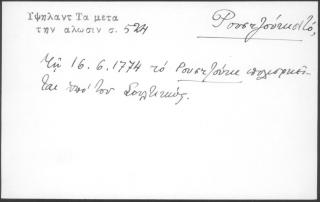 Ὑψηλαντ Τα μετα
την αλωσιν σ. 524
Ρουστζούκιτό,
Τῇ 16.6.1774 τό Ρουστζούκι πολιορκεῖ-
ται ὑπό του